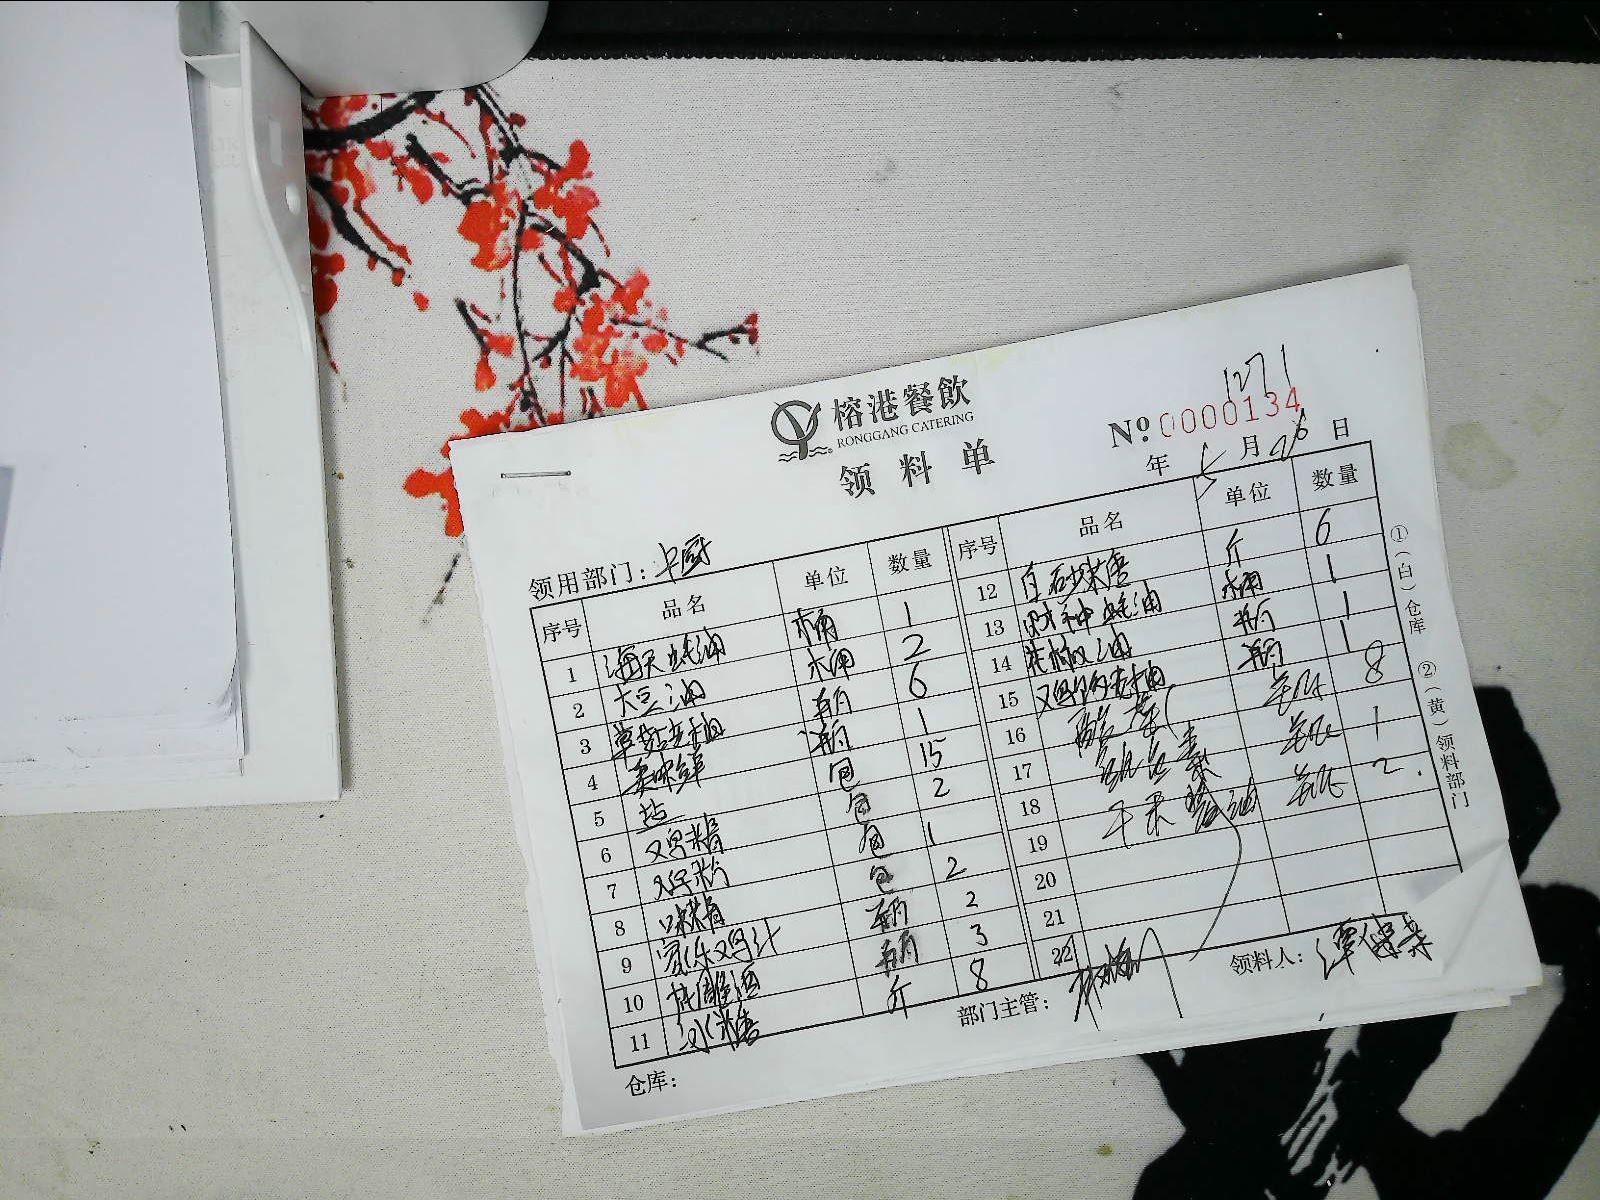 榕港餐飲
RONGGANG CATERING
领料单
1271
Nº 0000134
年 5 月 26 日
领用部门: 中厨
序号 品名 单位 数量
1 海天蚝油 桶 1
2 大豆油 桶 2
3 草菇老抽 瓶 6
4 美味鲜 瓶 1
5 盐 包 15
6 鸡精 包 2
7 鸡粉 包 1
8 味精 包 2
9 家乐鸡汁 瓶 2
10 花雕酒 瓶 3
11 冰糖 斤 8
序号 品名 单位 数量
12 白砂糖 斤 6
13 财神蚝油 桶 1
14 花椒油 瓶 1
15 老抽 瓶 1
16 酸菜 8
17 1
18 油 2
19
20
21
22
仓库:
部门主管:
领料人: 谭
①(白)仓库 ②(黄)领料部门